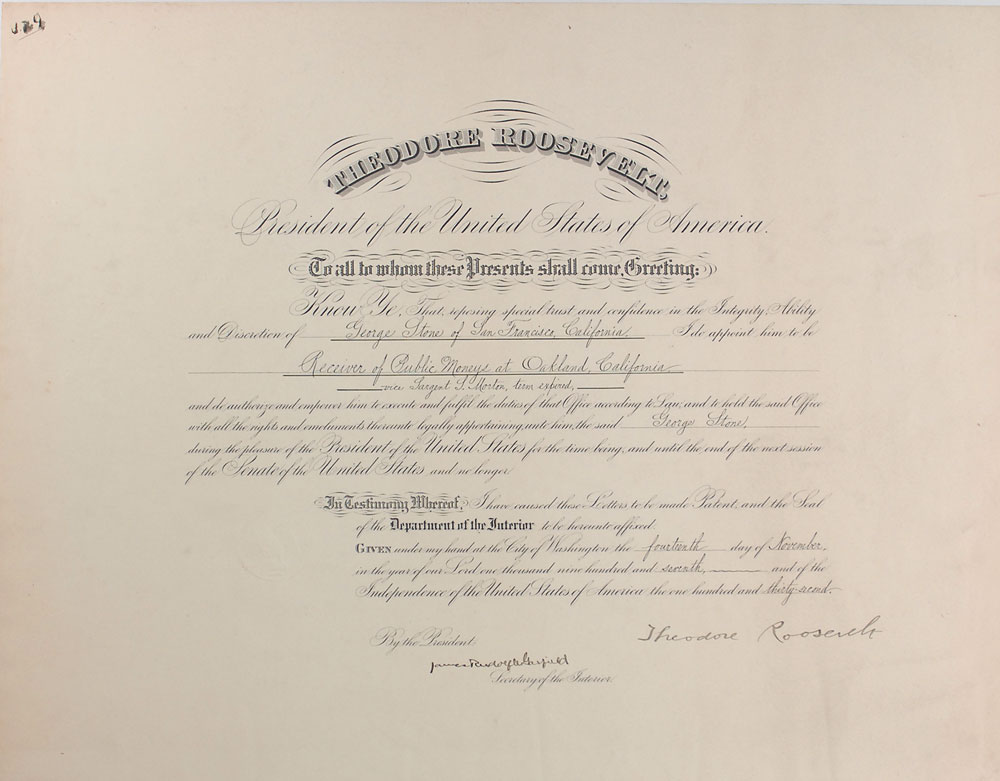 129
THEODORE ROOSEVELT,
President of the United States of America.
To all to whom these Presents shall come, Greeting:
Know Ye, That, reposing special trust and confidence in the Integrity, Ability
and Discretion of George Stone of San Francisco, California, I do appoint him to be
Receiver of Public Moneys at Oakland, California
vice Sargent S. Morton, term expired,
and do authorize and empower him to execute and fulfil the duties of that Office according to Law, and to hold the said Office
with all the rights and emoluments thereunto legally appertaining, unto him, the said George Stone,
during the pleasure of the President of the United States for the time being, and until the end of the next session
of the Senate of the United States and no longer
In Testimony Whereof, I have caused these Letters to be made Patent, and the Seal
of the Department of the Interior to be hereunto affixed.
GIVEN under my hand at the City of Washington the fourteenth day of November,
in the year of our Lord one thousand nine hundred and seventh, and of the
Independence of the United States of America the one hundred and thirty-second.
Theodore Roosevelt
By the President
James Rudolph Garfield
Secretary of the Interior.